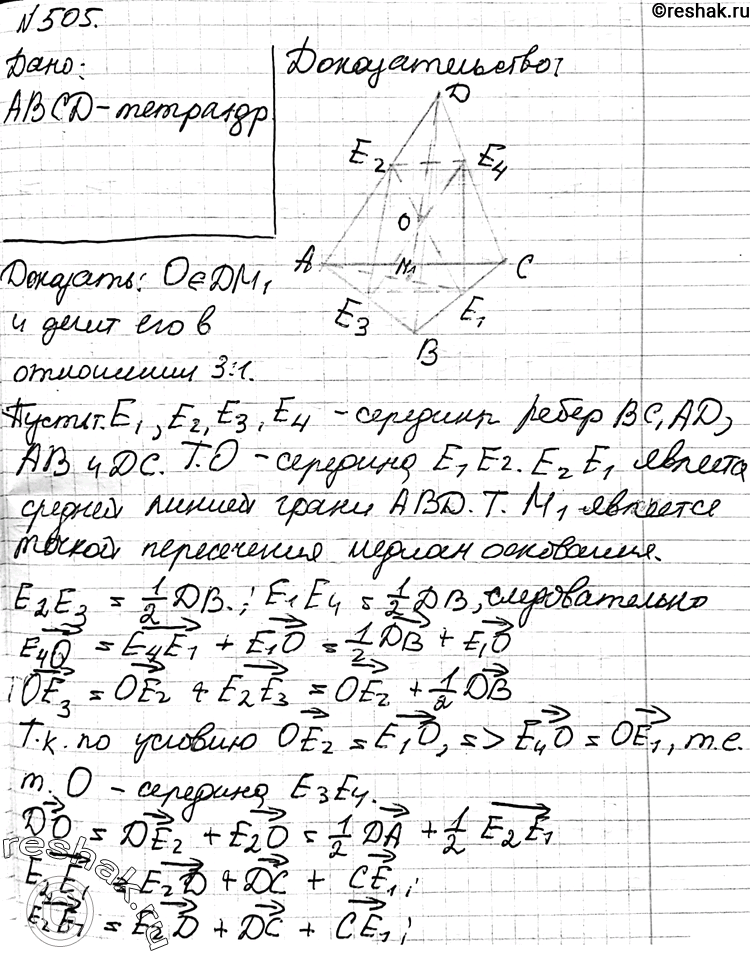 ©reshak.ru
№505.
Дано:
ABCD-тетраэдр
Доказательство:
D
E2 E4
O
A M1 C
E3 E1
B
Доказать: O∈DM1
и делит его в
отношении 3:1.
Пусть т. E1, E2, E3, E4 - середины ребер BC, AD,
AB и DC. Т.O - середина E1E2. E2E1 является
средней линией грани ABD. Т. M1 является
точкой пересечения медиан основания.
E2E3 = 1/2 DB.; E1E4 = 1/2 DB, следовательно
E4O = E4E1 + E1O = 1/2 DB + E1O
; OE3 = OE2 + E2E3 = OE2 + 1/2 DB
Т.к. по условию OE2 = E1O, => E4O = OE1, т.е.
т. O - середина E3E4.
DO = DE2 + E2O = 1/2 DA + 1/2 E2E1
E2E1 = E2D + DC + CE1;
E2E1 = E2D + DC + CE1;